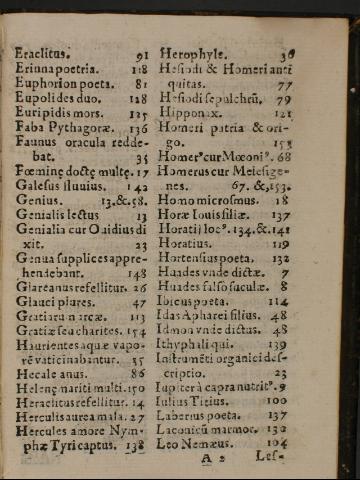 Eraclitus. 91
Erinna poetria. 118
Euphorion poeta. 81
Eupolides duo. 128
Euripidis mors. 125
Faba Pythagoræ. 136
Faunus oracula redde-
bat. 35
Fœminę doctę multę. 17
Galesus fluuius. 142
Genius. 13.&.58.
Genialis lectus 13
Genialia cur Ouidius di
xit. 23
Genua supplices appre-
hendebant. 148
Glareanus refellitur. 26
Glauci plures. 47
Gratiarum arcæ. 113
Gratiæ seu charites. 154
Haurientes aquæ vapo-
rē vaticinabantur. 35
Hecale anus. 86
Helenę mariti multi. 150
Heraclitus refellitur. 14
Herculis aurea mala. 27
Hercules amore Nym-
phæ Tyri captus. 138
Herophyle. 36
Hesiodi & Homeri anti
quitas. 77
Hesiodi sepulchrū. 79
Hipponax. 121
Homeri patria & ori-
go. 151
Homerꝰ cur Mœoniꝰ. 68
Homerus cur Melesige-
nes. 67. &, 153.
Homo microsmus. 18
Horæ Iouis filiæ. 137
Horatij locꝰ. 134. &. 141
Horatius. 119
Hortensius poeta. 132
Huades vnde dictæ. 7
Huades falso suculæ. 8
Ibicus poeta. 114
Idas Apharei filius. 48
Idmon vnde dictus. 48
Ithyphali qui. 139
Instrumēti organici des-
criptio. 23
Iupiter à capra nutritꝰ. 9
Iulius Titius. 100
Laberius poeta. 137
Laconicū marmor. 132
Leo Nemæus. 104
A 2 Les-